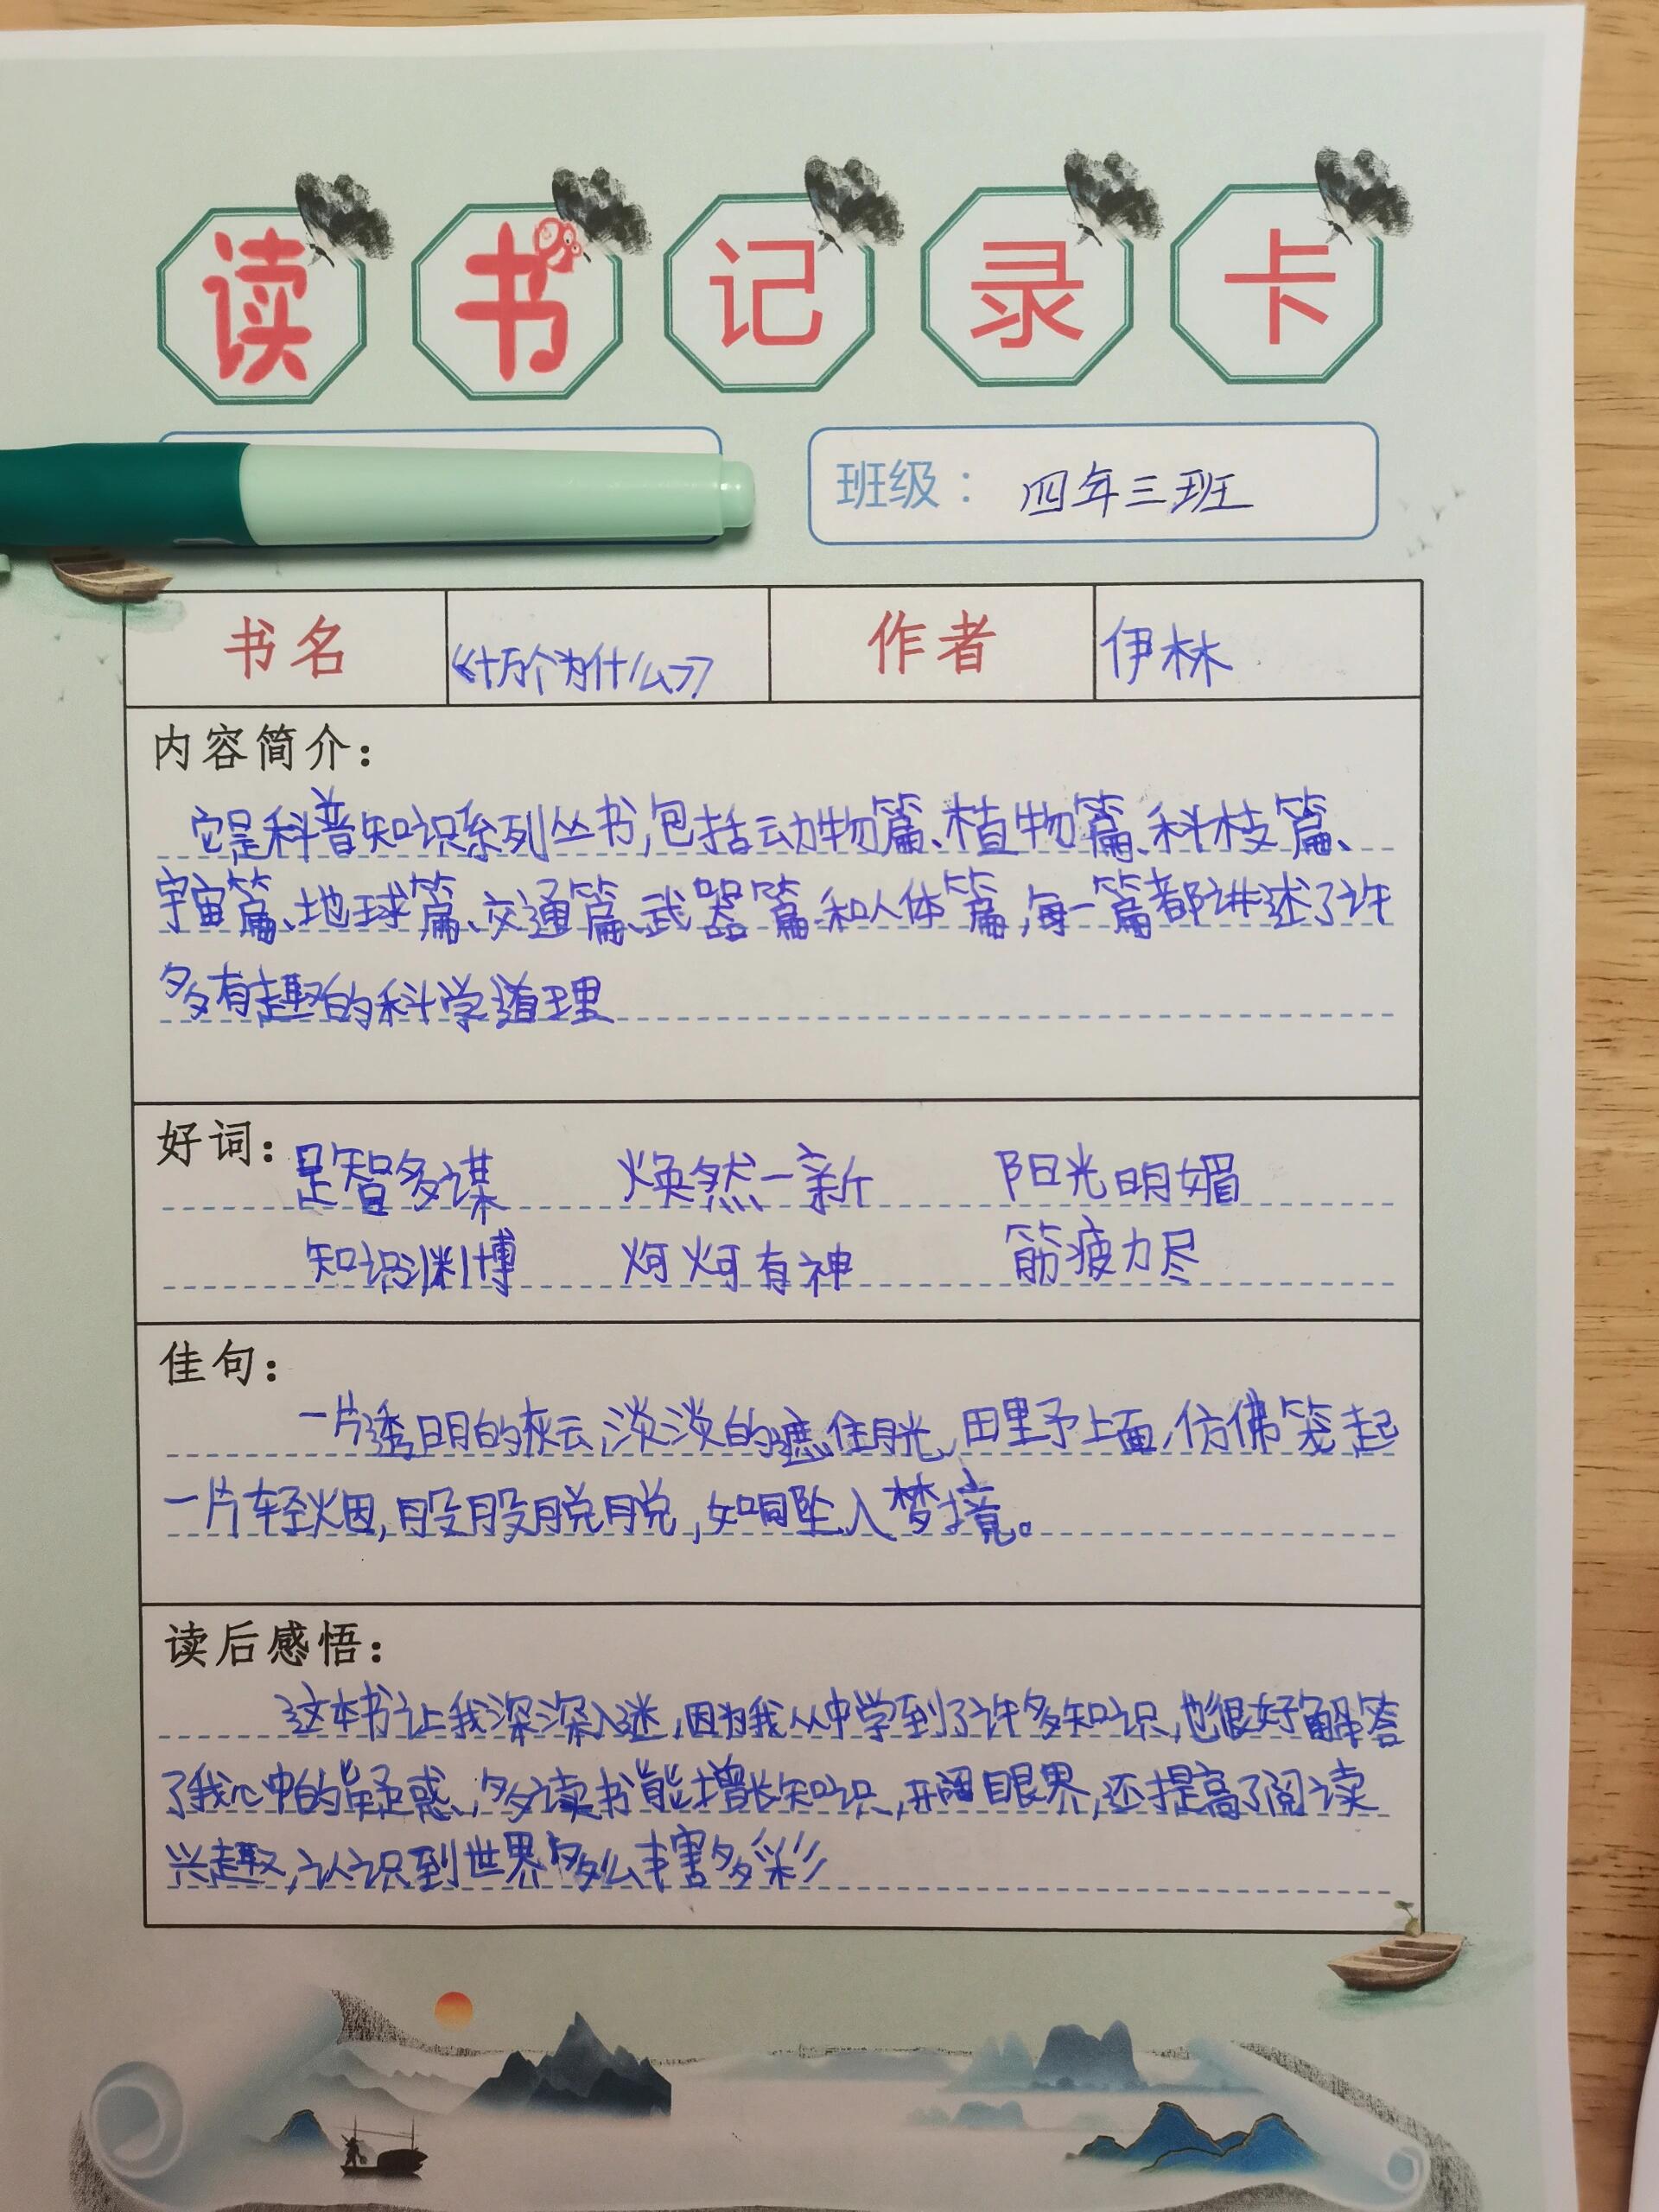 读书记录卡
班级：四年三班
书名 《十万个为什么》 作者 伊林
内容简介：
它是科普知识系列丛书,包括动物篇、植物篇、科枝篇、
宇宙篇、地球篇、交通篇、武器篇和人体篇,每一篇都讲述了许
多有趣的科学道理
好词：足智多谋 焕然一新 阳光明媚
知识渊博 炯炯有神 筋疲力尽
佳句：
一片透明的灰云,淡淡的遮住月光,田野上面,仿佛笼起
一片轻烟,股股脱脱,如同坠入梦境。
读后感悟：
这本书让我深深入迷,因为我从中学到了许多知识,也很好解答
了我心中的疑惑、多读书能增长知识,开阔眼界,还提高了阅读
兴趣,认识到世界多么丰富多彩